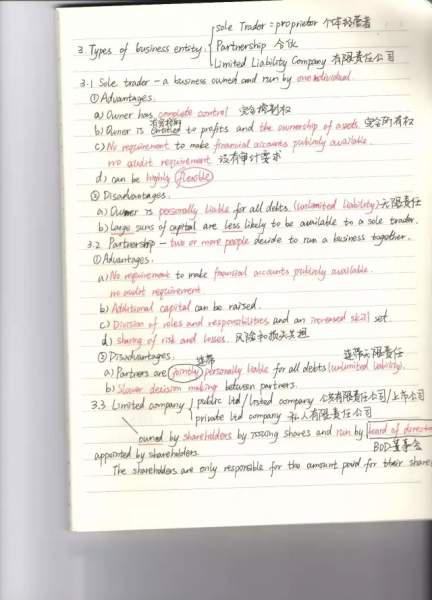 sole Trader = proprietor 个体经营者
3. Types of business entity. Partnership 合伙
Limited Liability Company 有限责任公司
3.1 Sole trader - a business owned and run by one individual.
①Advantages.
a) Owner has complete control 完全控制权
b) Owner is entitled to profits and the ownership of assets. 完全所有权
c) No requirement to make financial accounts publicly available.
no audit requirement 没有审计要求
d) can be highly flexible
② Disadvantages.
a) Owner is personally liable for all debts. (unlimited liability) 无限责任
b) large sums of capital are less likely to be available to a sole trader.
3.2 Partnership - two or more people decide to run a business together.
①Advantages.
a) No requirement to make financial accounts publicly available.
no audit requirement
b) Additional capital can be raised.
c) Division of roles and responsibilities and an increased skill set
d) sharing of risk and losses. 风险和损失共担
② Disadvantages. 连带 连带无限责任
a) Partners are jointly personally liable for all debts (unlimited liability).
b) Slower decision making between partners.
3.3 Limited company public ltd / listed company 公共有限责任公司/上市公司
private ltd company 私人有限责任公司
owned by shareholders by issuing shares and run by board of directo
appointed by shareholders. BOD 董事会
The shareholders are only responsible for the amount paid for their share